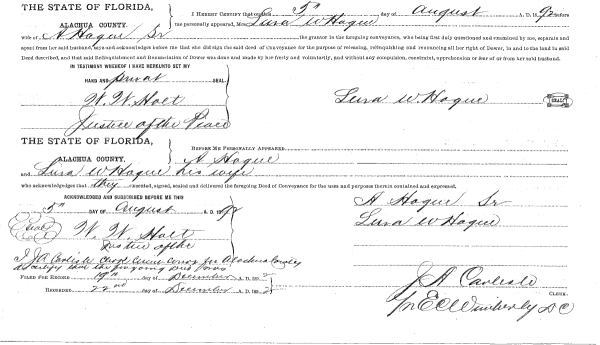 THE STATE OF FLORIDA,
ALACHUA COUNTY.
I HEREBY CERTIFY that on this 5th day of August A. D. 1892 before
me personally appeared, Mrs. Lura W Hague
wife of A Hague Sr the grantor in the foregoing conveyance, who being first duly questioned and examined by me, separate and
apart from her said husband, says and acknowledges before me that she did sign the said deed of Conveyance for the purpose of releasing, relinquishing and renouncing all her right of Dower, in and to the land in said
Deed described, and that said Relinquishment and Renunciation of Dower was done and made by her freely and voluntarily, and without any compulsion, constraint, apprehension or fear of or from her said husband.
IN TESTIMONY WHEREOF I HAVE HEREUNTO SET MY
HAND AND privat SEAL
W. W. Holt
Justice of the Peace
Lura W. Hague
SEAL
THE STATE OF FLORIDA,
ALACHUA COUNTY.
BEFORE ME PERSONALLY APPEARED A Hague
and Lura W Hague his wife
who acknowledges that they executed, signed, sealed and delivered the foregoing Deed of Conveyance for the uses and purposes therein contained and expressed,
ACKNOWLEDGED AND SUBSCRIBED BEFORE ME THIS
5th DAY OF August A. D. 1892
Seal W. W. Holt
Justice of the
A Hague Sr
Lura W Hague
I J A Carlisle Clerk Circuit Court for Alachua County
do certify that the foregoing was
FILED FOR RECORD 19th day of December A. D. 1892
RECORDED 22nd day of December A. D. 1892
J A Carlisle
CLERK.
Per E C Wimberly D C